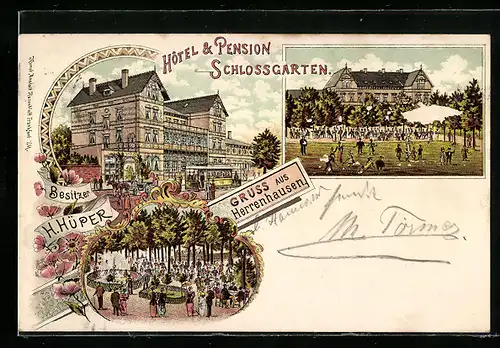 HÔTEL & PENSION
SCHLOSSGARTEN.
Besitzer
H. HÜPER
GRUSS AUS
Herrenhausen!
Hannover
M. Törmer